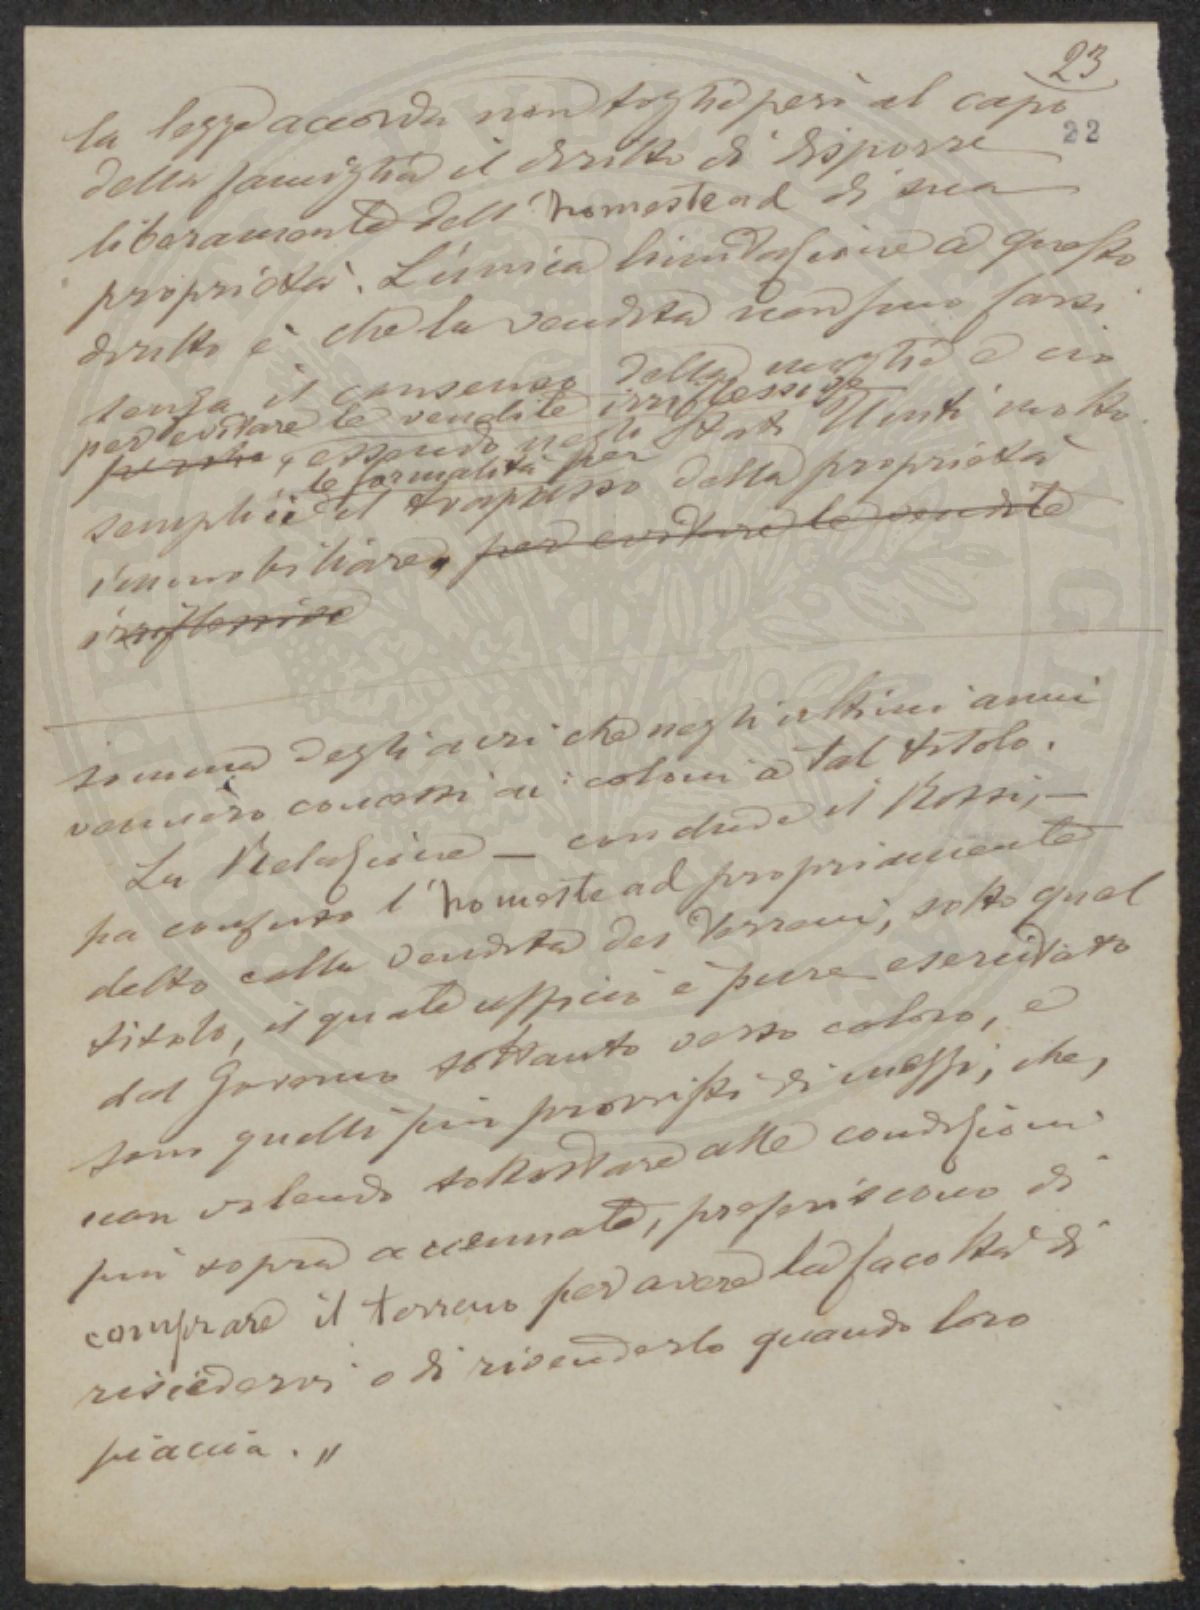 23
22
la legge accorda non toglie però al capo
della famiglia il diritto di disporre
liberamente dell'homestead di sua
proprietà. L'unica limitazione a questo
diritto è che la vendita non può farsi
senza il consenso della moglie e ciò
per evitare le vendite irriflessive
perchè, essendo negli Stati Uniti molto
le formalità per
semplici il trapasso della proprietà
immobiliare, per evitare le vendite
irriflessive
somma degli acri che negli ultimi anni
vennero concessi ai coloni a tal titolo.
La Relazione — conchiude il Rossi, —
ha confuso l'homestead propriamente
detto colla vendita dei terreni, sotto quel
titolo, il quale ufficio è pure esercitato
dal Governo soltanto verso coloro, e
sono quelli più provvisti di mezzi, che,
non volendo sottostare alle condizioni
più sopra accennate, preferiscono di
comprare il terreno per avere la facoltà di
risiedervi o di rivenderlo quando loro
piaccia. "